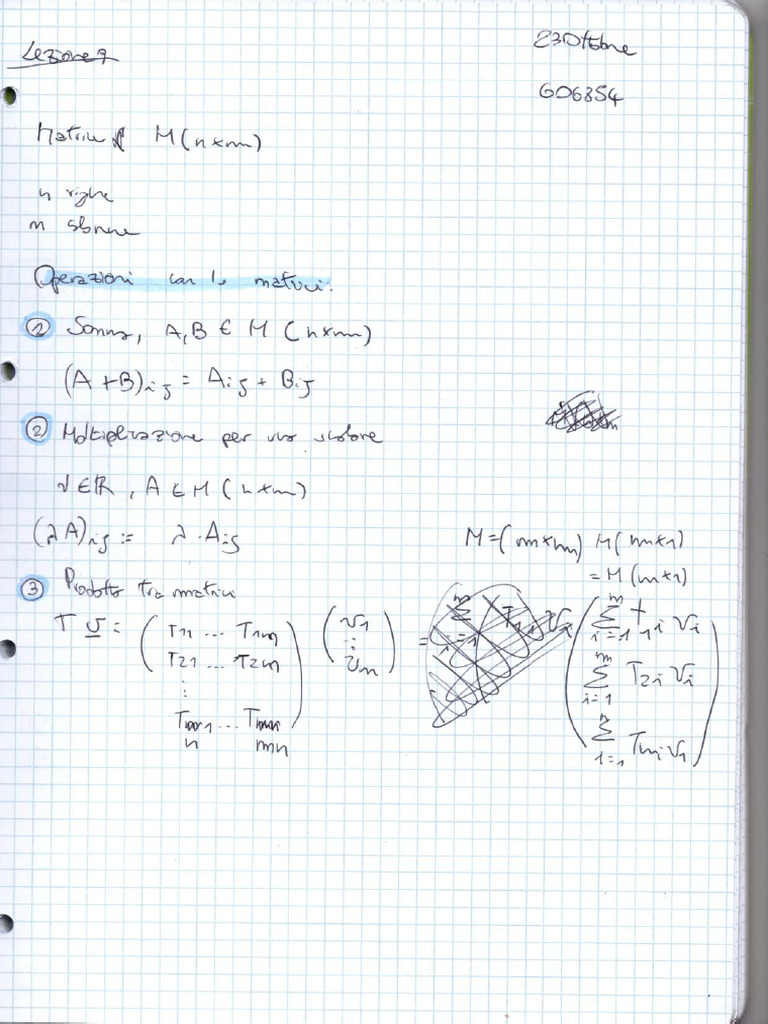 Lezione 7
23 Ottobre
606854
Matrice M(n×m)
n righe
m colonne
Operazioni con le matrici.
① Somma, A,B ∈ M (n×m)
(A+B)ij = Aij + Bij
② Moltiplicazione per uno scalare
λ ∈ ℝ, A ∈ M (n×m)
(λA)ij = λ · Aij
M=(m×m) M(m×1)
= M(m×1)
③ Prodotto tra matrici
T v = ( T11 ... T1m
T21 ... T2m
⋮
Tn1 ... Tmn ) ( v1
⋮
vm ) = ( ∑ i=1 m T1i vi
∑ i=1 m T2i vi
∑ i=1 Tmi vi )